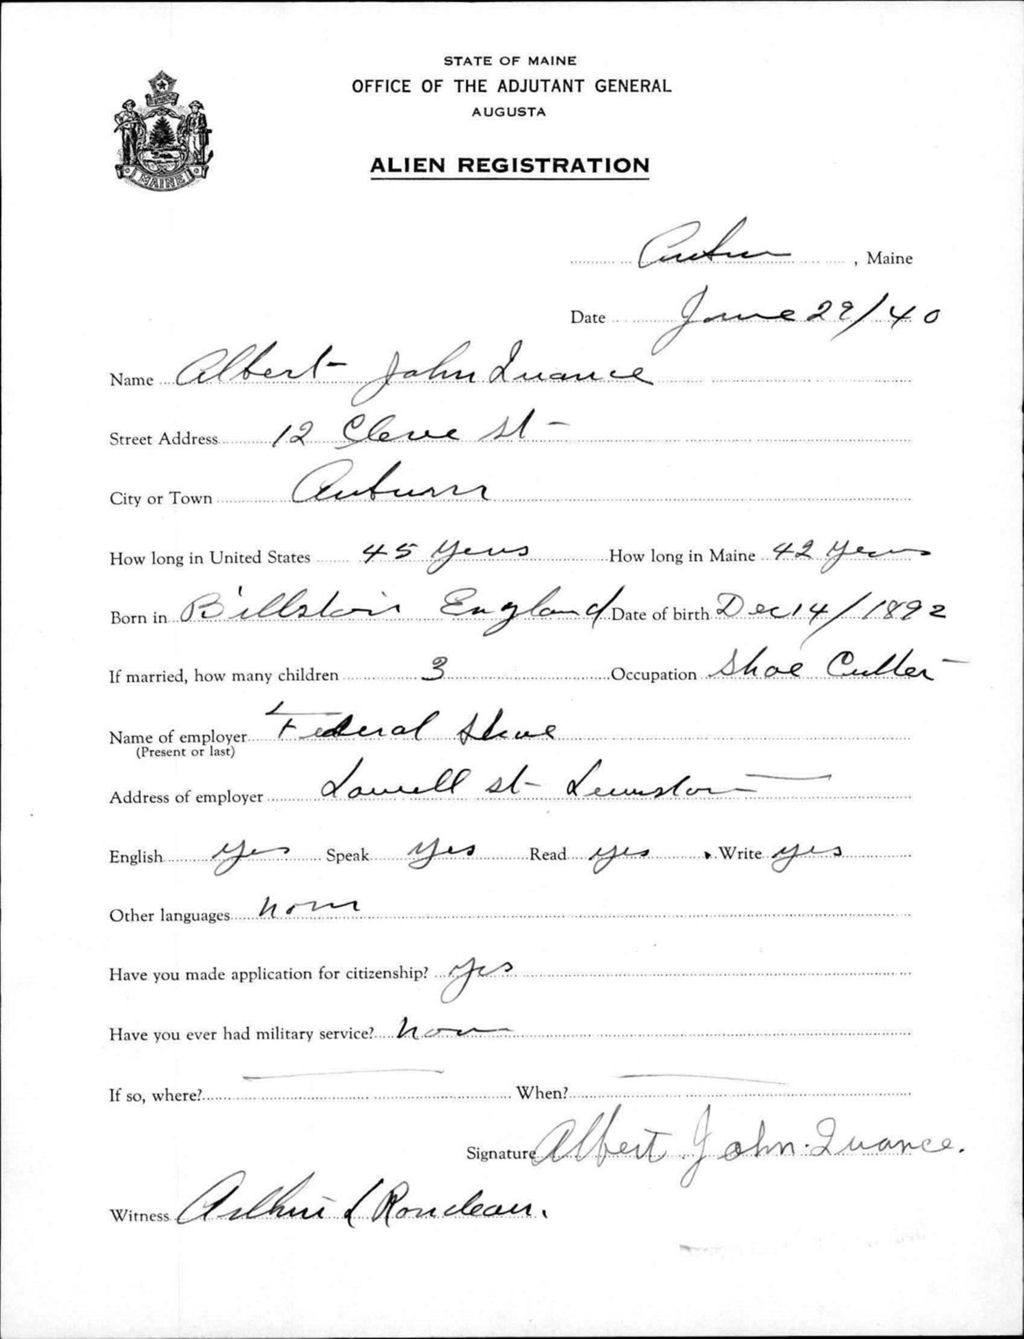 STATE OF MAINE
OFFICE OF THE ADJUTANT GENERAL
AUGUSTA
ALIEN REGISTRATION
MAINE
Auburn, Maine
Date June 29/40
Name Albert John Quance
Street Address 12 Cleve St
City or Town Auburn
How long in United States 45 Years How long in Maine 42 Years
Born in Billston England Date of birth Dec 14/1892
If married, how many children 3 Occupation Shoe Cutter
Name of employer Federal Shoe
(Present or last)
Address of employer Lowell St Lewiston
English yes Speak yes Read yes Write yes
Other languages none
Have you made application for citizenship? yes
Have you ever had military service? none
If so, where? When?
Signature Albert John Quance.
Witness Arthur L Rondeau.